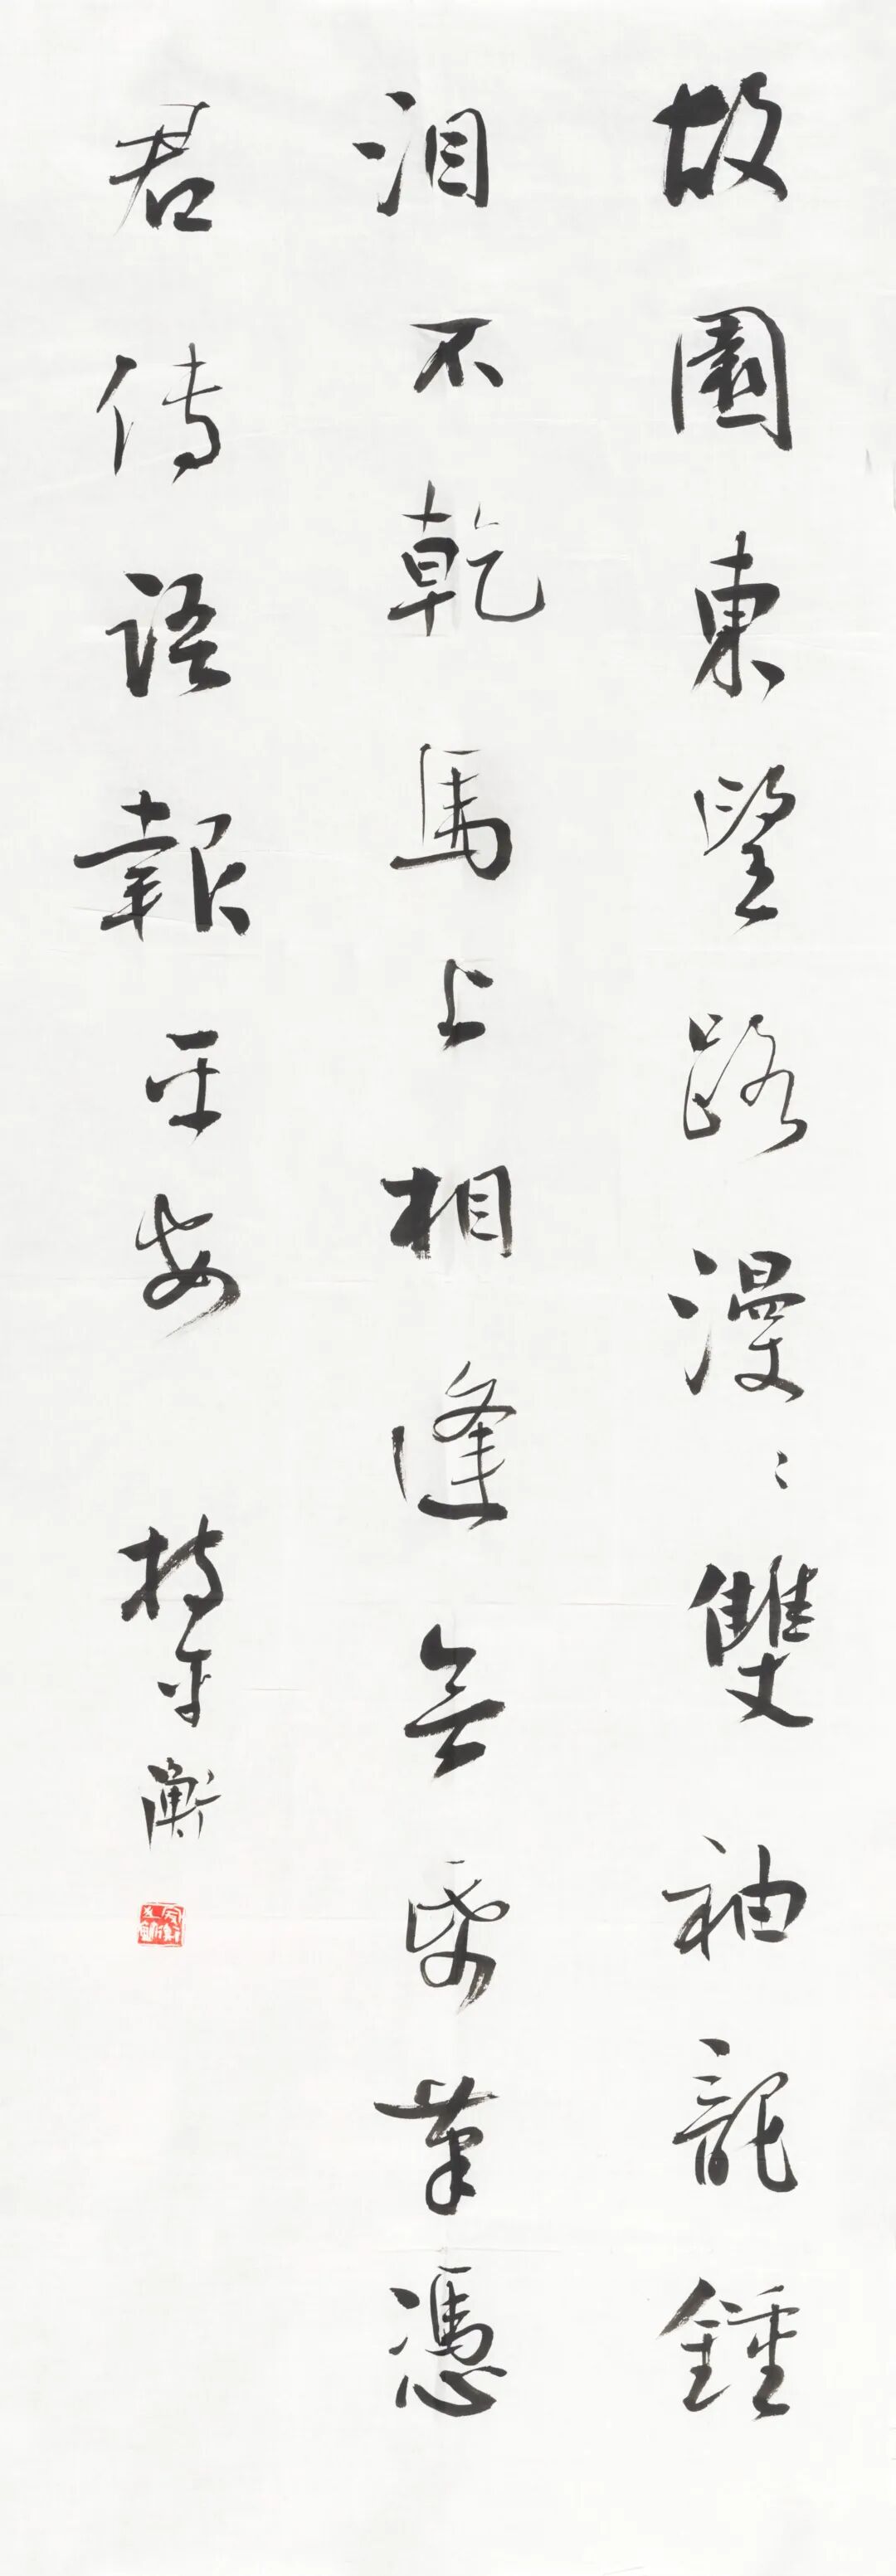 故園東望路漫〻雙袖龍鍾
泪不乾馬上相逢無紙筆憑
君傳語報平安 持平衡